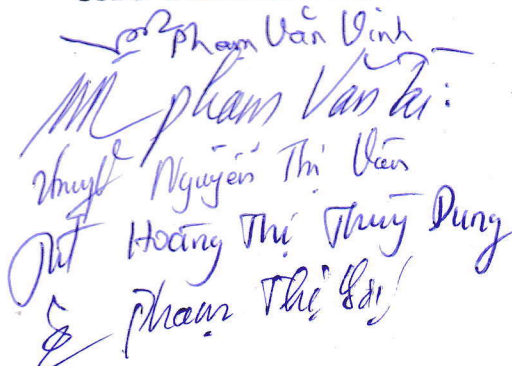 Phạm Văn Vinh
Phạm Văn Tài
Nguyễn Thị Vân
Hoàng Thị Thuỳ Dung
Phạm Thị